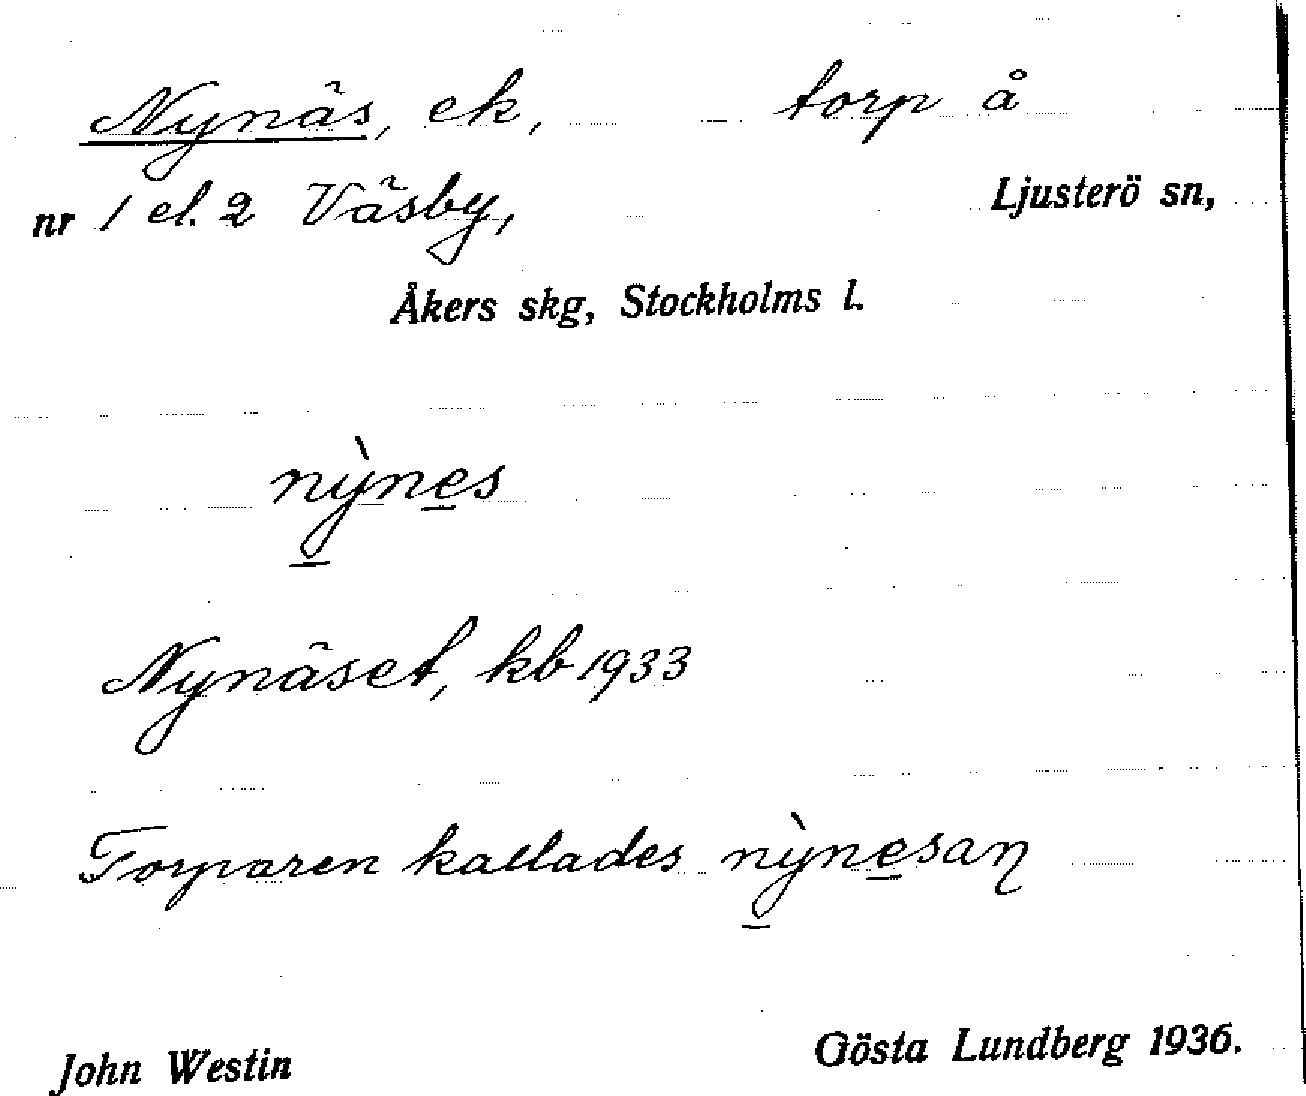 Nynäs, ek, torp å
nr 1 el. 2 Väsby, Ljusterö sn,
Åkers skg, Stockholms l.
nỳnes
Nynäset, kb 1933
Torparen kallades nỳnesaŋ
John Westin Gösta Lundberg 1936.